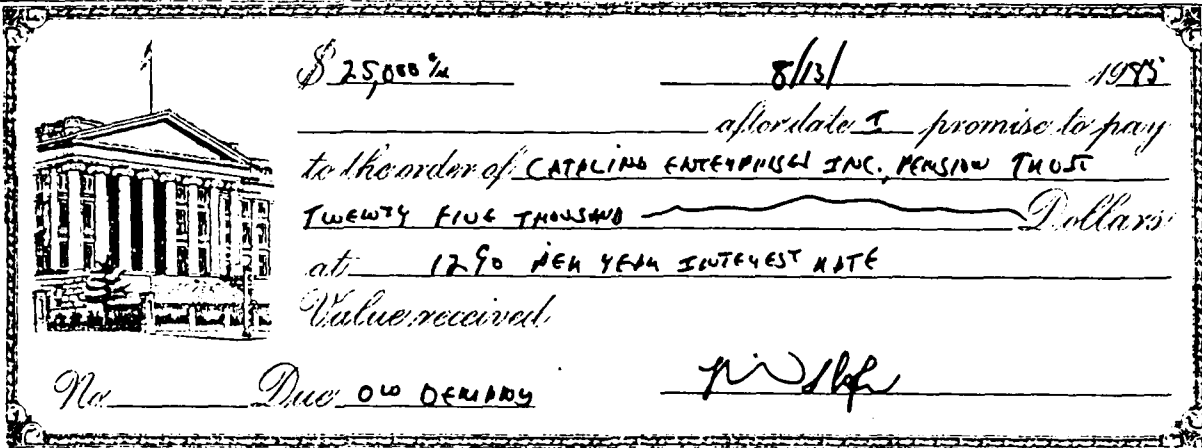 $ 25,000 8/13/ 1985
after date I promise to pay
to the order of CATALINA ENTERPRISES INC., PENSION TRUST
TWENTY FIVE THOUSAND Dollars
at 12% PER YEAR INTEREST RATE
Value received
No Due ON DEMAND